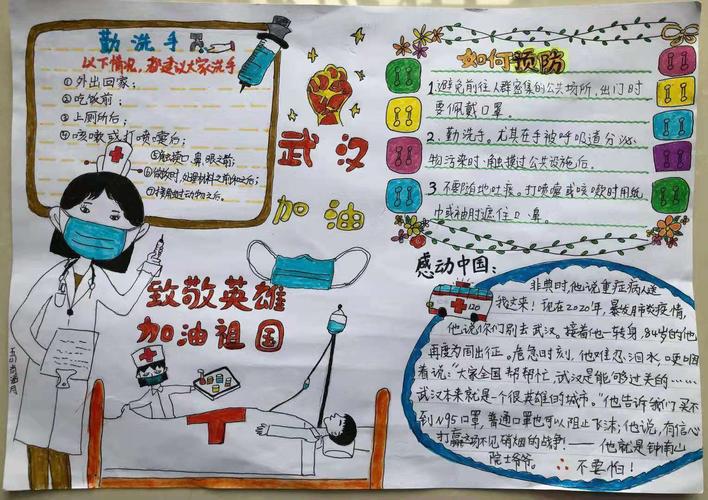 勤洗手
以下情况，都建议大家洗手
①外出回家；
②吃饭前；
③上厕所后；
④咳嗽或打喷嚏后；
⑤触摸口、鼻、眼之前；
⑦接触过动物之后。
武汉
加油
致敬英雄
加油祖国
如何预防
1.避免前往人群密集的公共场所，出门时
要佩戴口罩。
2.勤洗手。尤其在手被呼吸道分泌
物污染时、触摸过公共设施后。
3.不要随地吐痰。打喷嚏或咳嗽时用纸
巾或袖肘遮住口、鼻。
感动中国：
120
非典时，他说重症病人送
我这来！现在2020年，暴发肺炎疫情，
他说你们别去武汉。接着他一转身，84岁的他
再度为国出征。危急时刻，他难忍泪水，哽咽
着说："大家全国帮帮忙，武汉是能够过关的……
武汉本来就是一个很英雄的城市。"他告诉我们买不
到N95口罩，普通口罩也可以阻止飞沫，他说，有信心
打赢这场不见硝烟的战争！——他就是钟南山
院士爷爷。
不要怕！